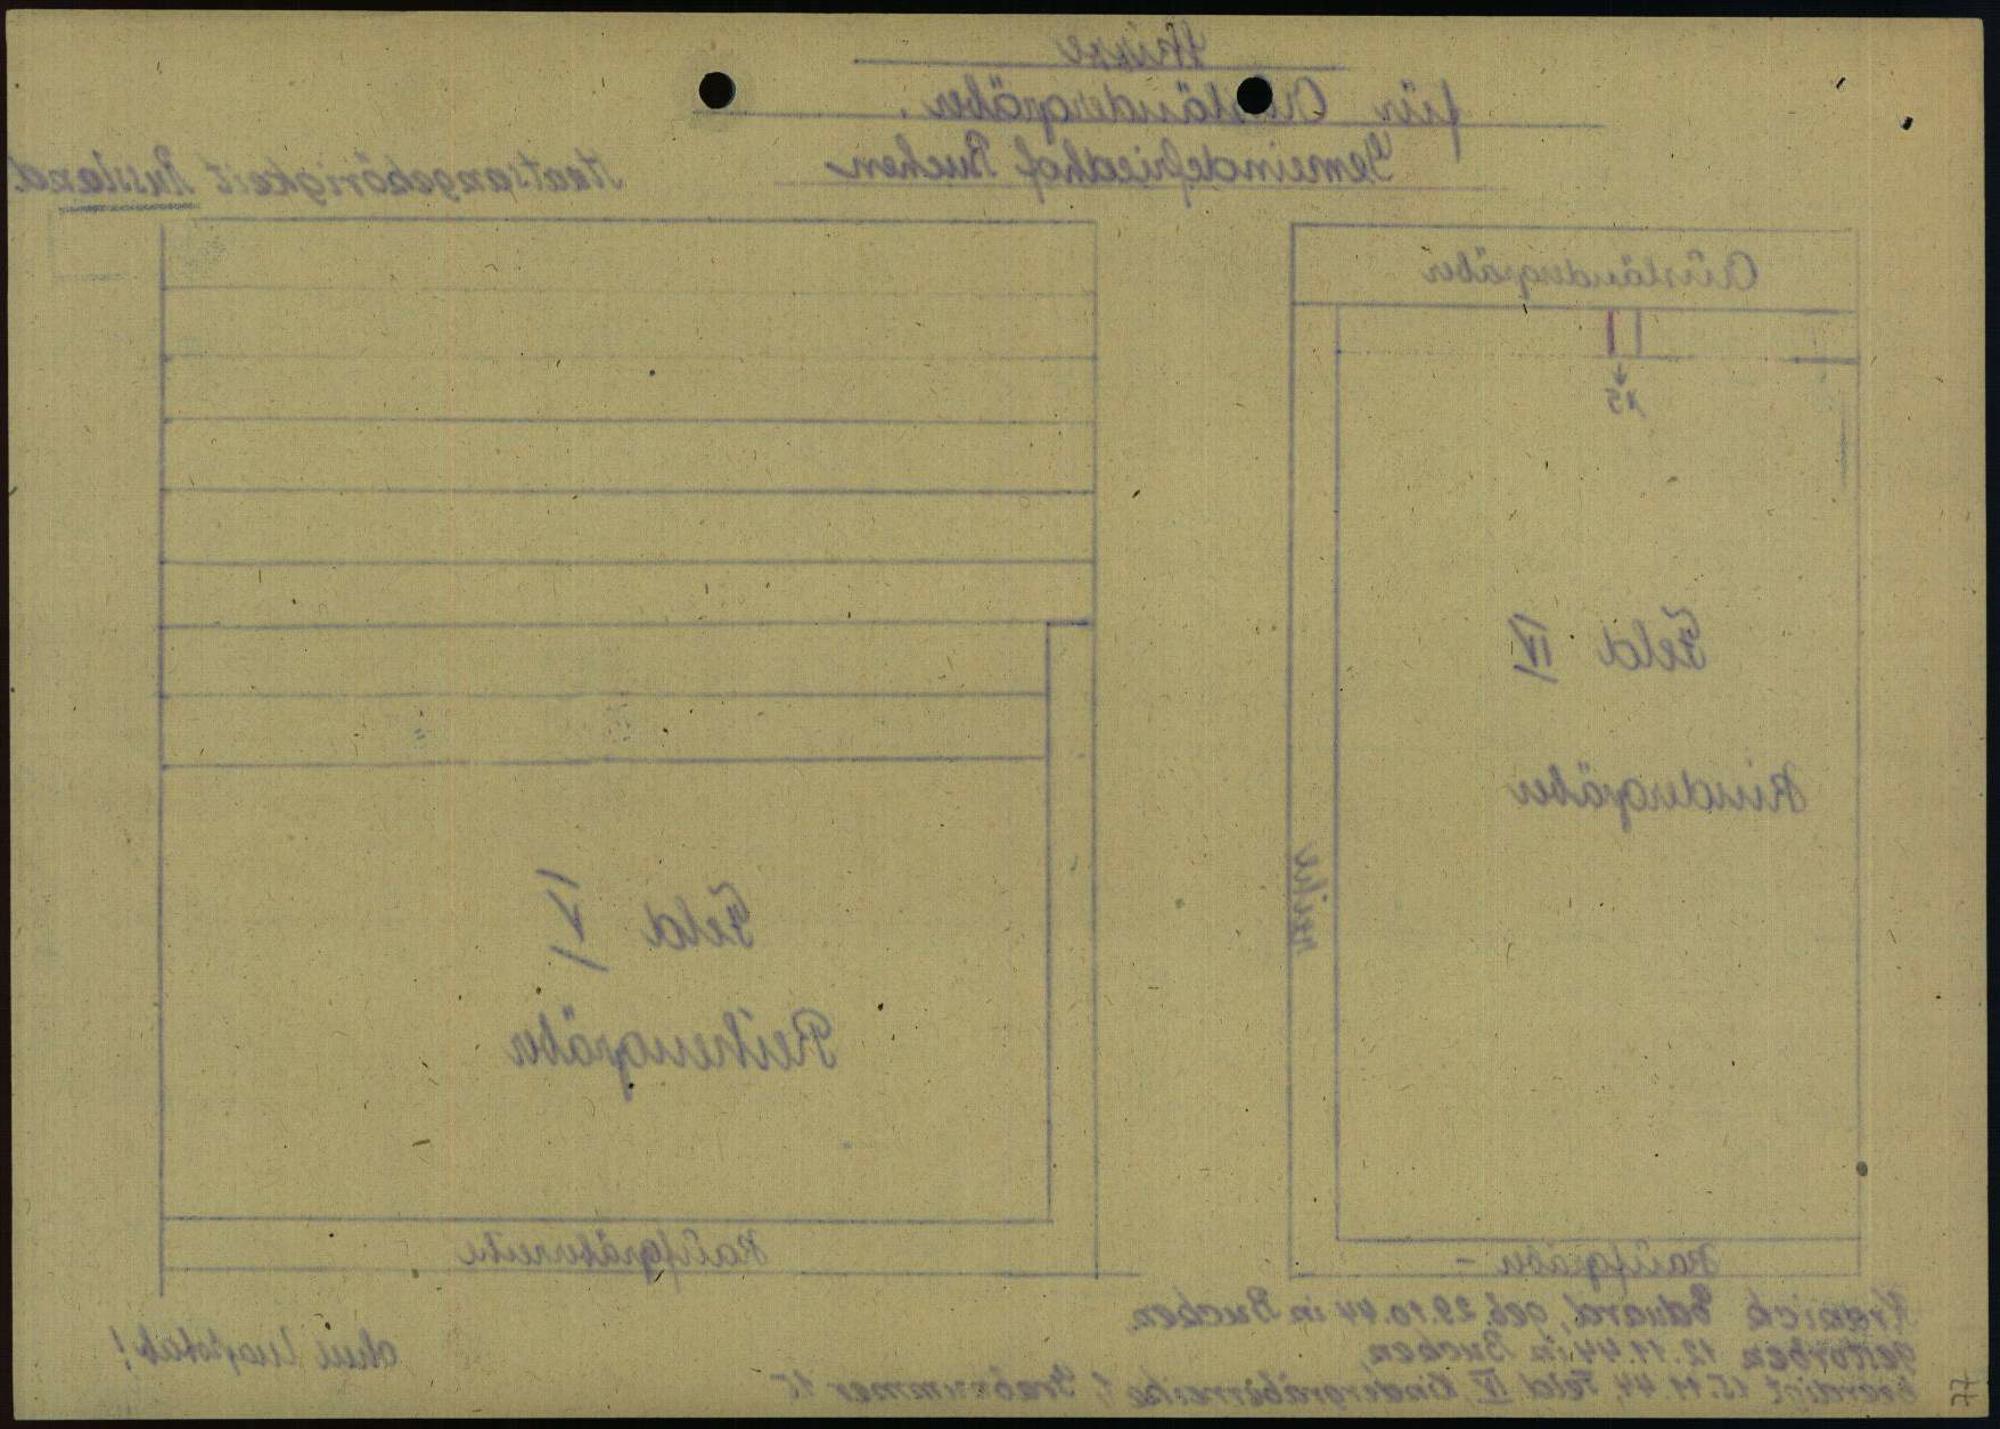 Skizze
für Ausländergräber.
Gemeindefriedhof Buchen
Staatsangehörigkeit Russland.
Ausländergräber
15
Feld IV
Kindergräber
Feld V
Reihengräber
Kaufgräber -
Kaufgräberreihe
Eduard, geb. 29.10.44 in Buchen.
gestorben 12.11.44 in Buchen,
beerdigt 15.11.44, Feld IV Kindergräberreihe 1, Grabnummer 15
ohne Maßstab!
77